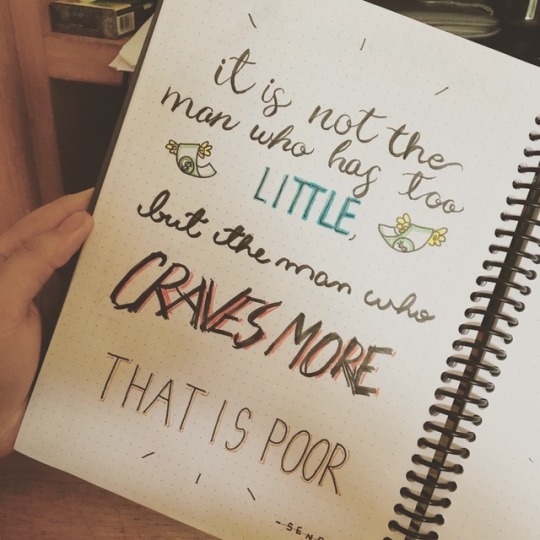 it is not the
man who has too
LITTLE,
but the man who
CRAVES MORE
THAT IS POOR